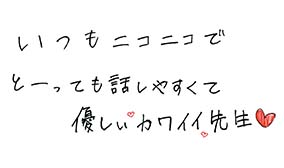 いつもニコニコで
とーっても話しやすくて
優しいカワイイ先生❤